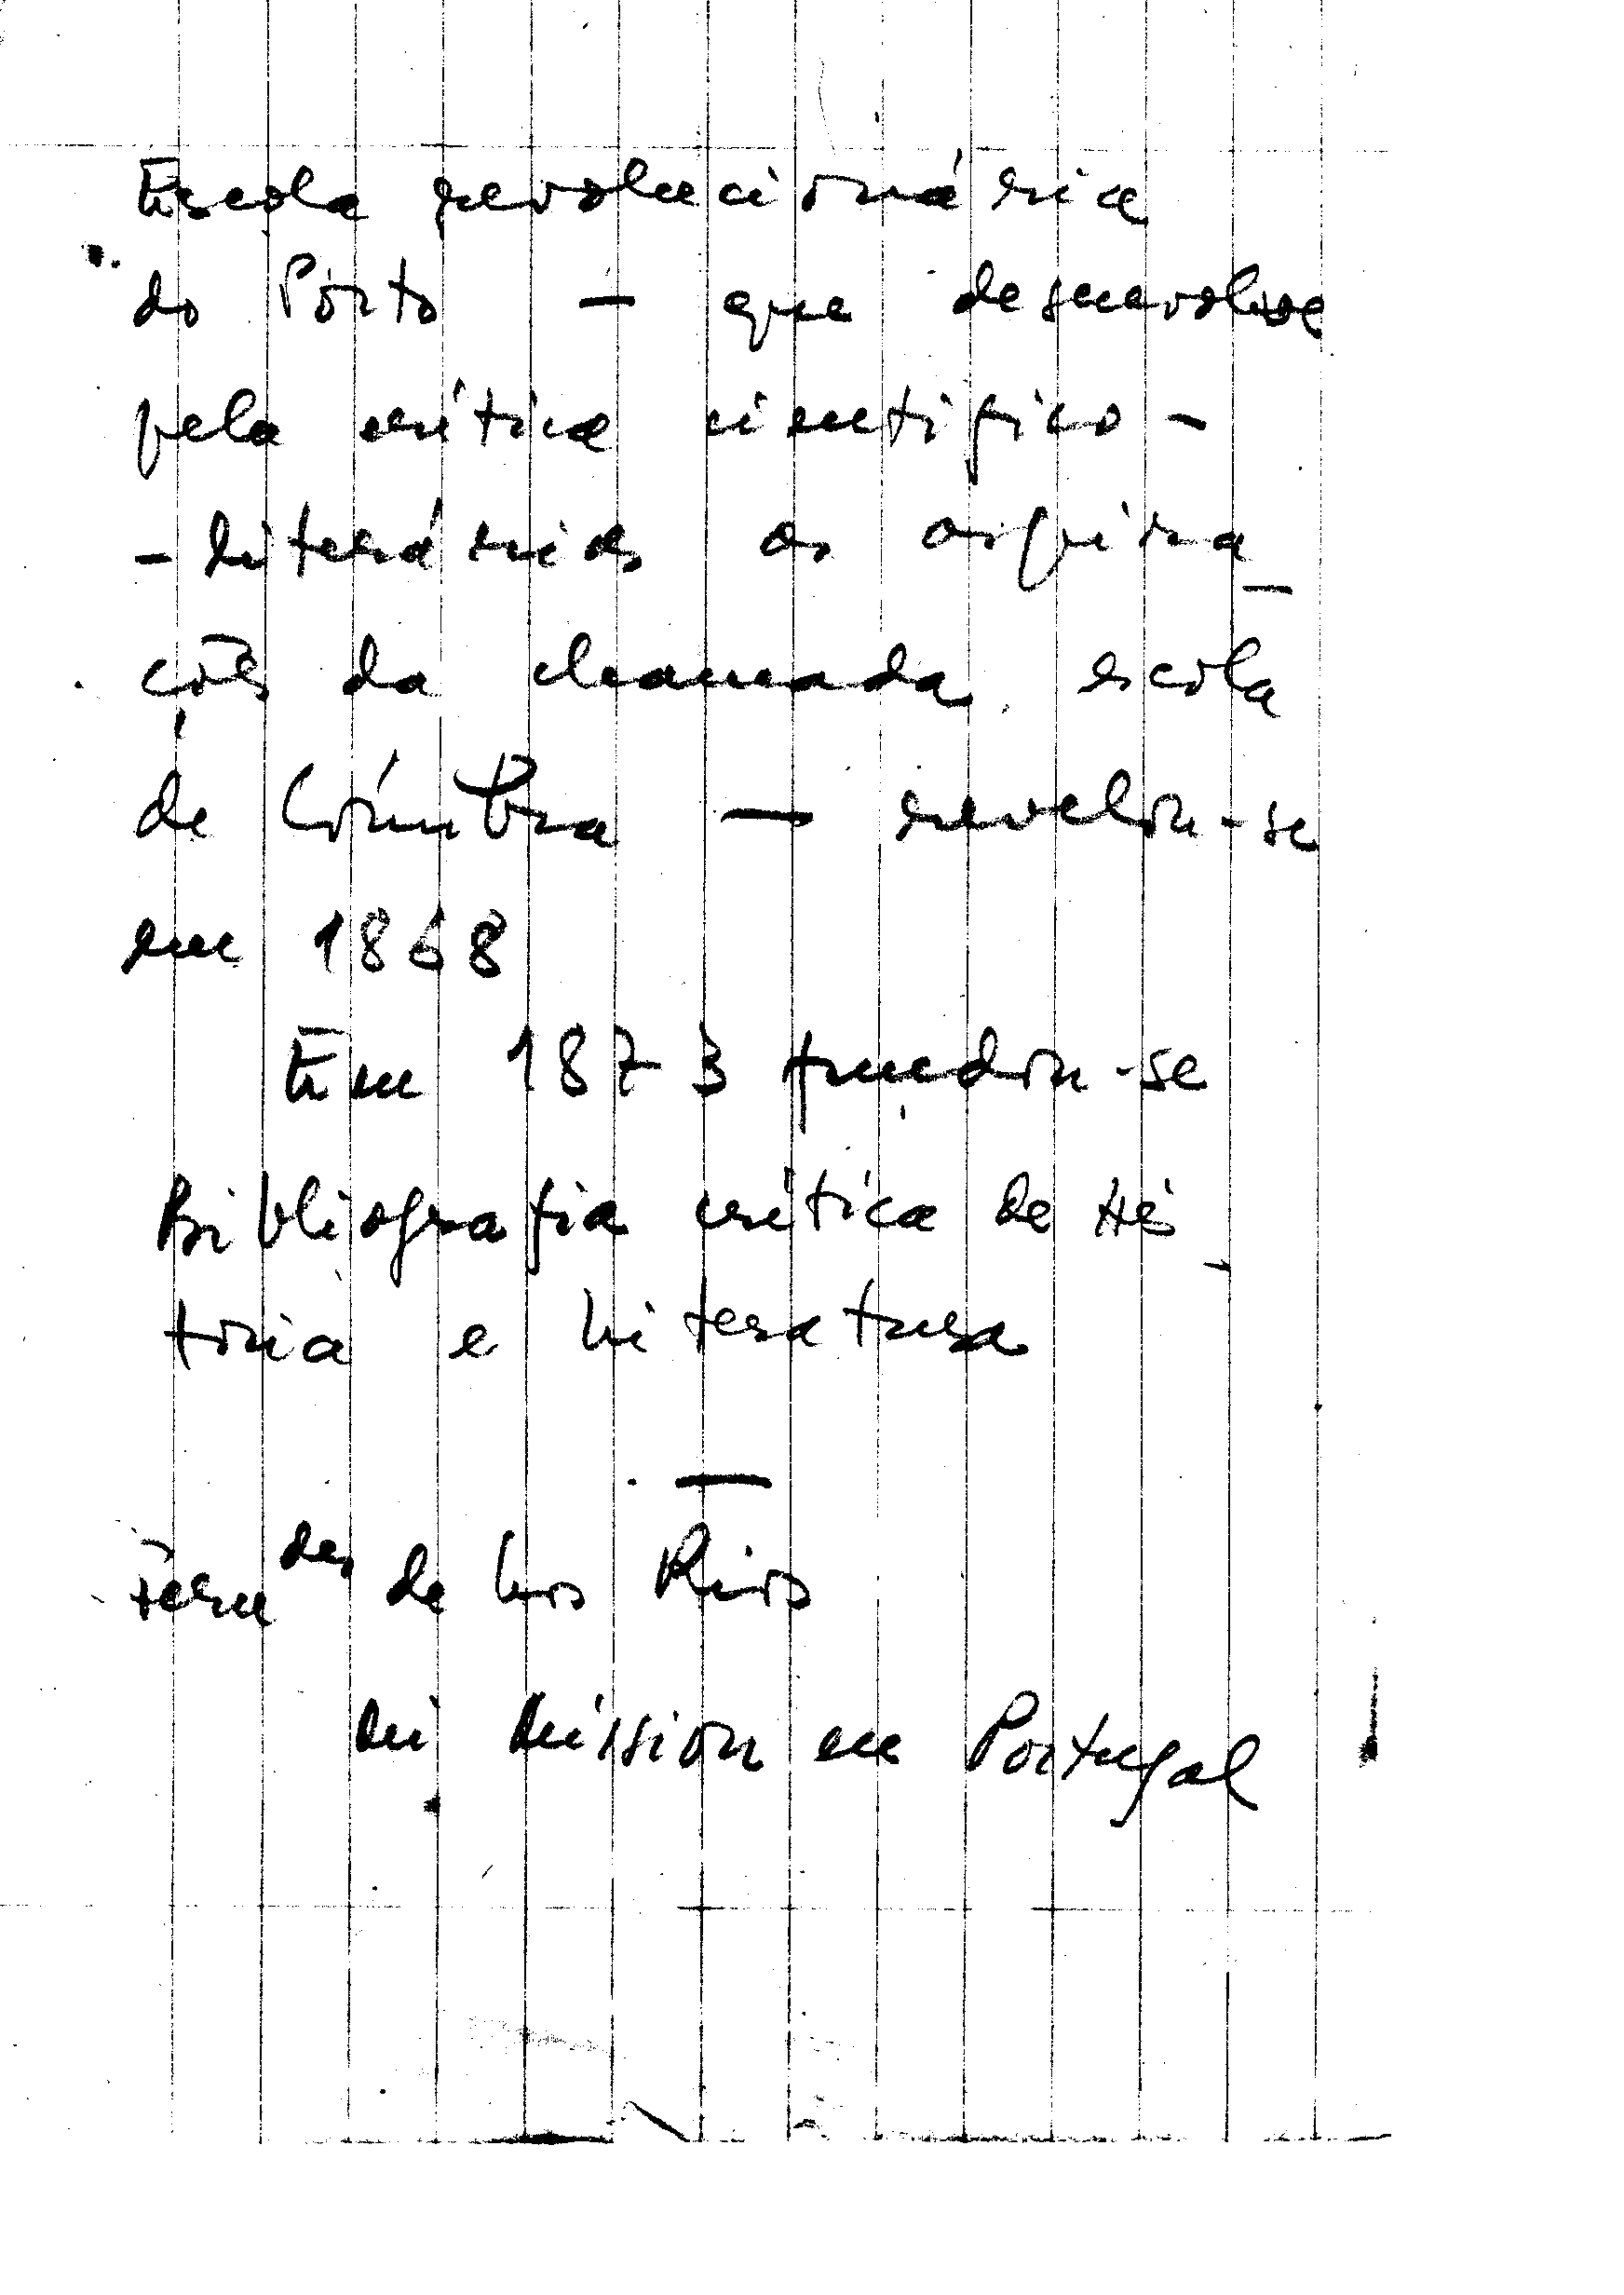 Escola revolucionária
do Pôrto — que desenvolve
pela crítica cientifico-
-literárias as aspira-
ções da chamada escola
de Coímbra — revelou-se
em 1868
Em 1873 fundou-se
Bibliografia crítica de His-
tória e Literatura
—
Ferndes de los Rios
Mi mission en Portugal